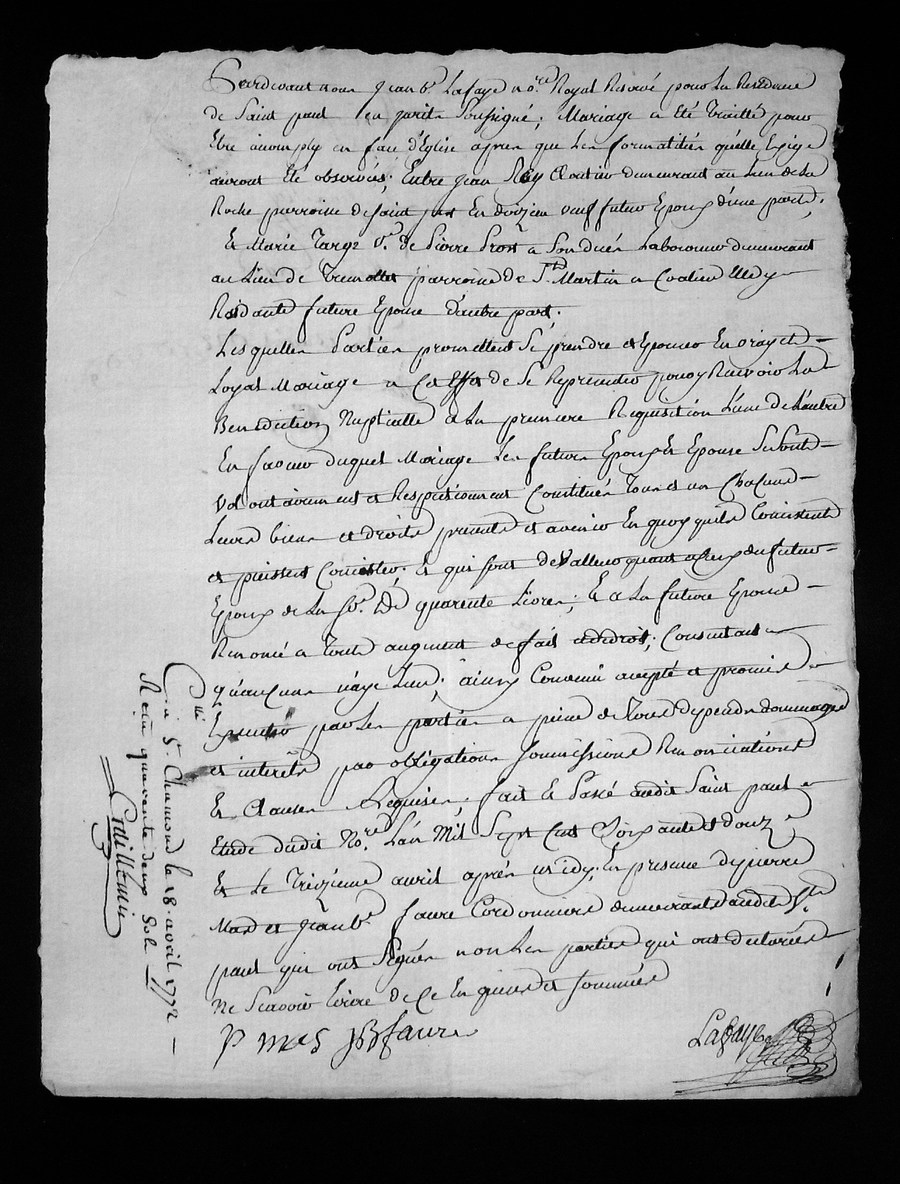 Pardevant nous Jean b.te Lafaye no.re Royal Reservé pour la Residence
de Saint paul en jarits Soussigné; Mariage a été Traitté pour
Etre accomply en face d'Eglise apren que Les formalitées qu'elle Exige
auront été observées; Entre Jean Rey Cloutier demeurant au Lieu de la
Roche parroisse de saint just En doizieu veuf futur Epoux d'une part,
Et Marie V.e de Pierre Prost a Son Laboureur demeurant
au Lieu de parroisse de S.t Martin a Coalieu
Residante future Epouse d'autre part.
Lesquelles Parties promettent Se prendre et Epouser En vray et
Loyal Mariage a Cet Effet de se Representer pour y Recevoir La
Benediction Nuptialle a La premiere Requisition L'une de L'autre
En faveur duquel Mariage Les futurs Epoux et Epouse Se Sont
Volontairement et Respectivement Constitués Tous et un Chacuns
Leurs biens et droits presents et avenir En quoy qu'ils Consistent
et puissent Consister. Et qui sont de Valleur quant a Ceux du futur
Epoux de La So.e De quarente Livres; Et a La future Epouse
Renoncé a Toute augment de fait Consentant
qu'aucuns n'aye Lieu; ainsy Convenu accepté et promis
Executer par Les parties a peine de Tous depends dommages
et interêts par obligations soumissions Renonciations
Et Clauses Requises; fait Et Passé audit Saint paul
Etude dudit No.re L'an Mil Sept Cent Soixante et douze
Et Le Treizieme avril après midy, En presence de pierre
Mas et Jean b.te faure Cordonniers demeurants audit S.t
paul qui ont Signés non Les parties qui ont declarées
Ne Scavoir Ecrire de Ce Enquises et Sommées
P mas JB faure
Lafaye
C.llé à S.t Chamond le 28. avril 1772
Reçu quarente deux Sols